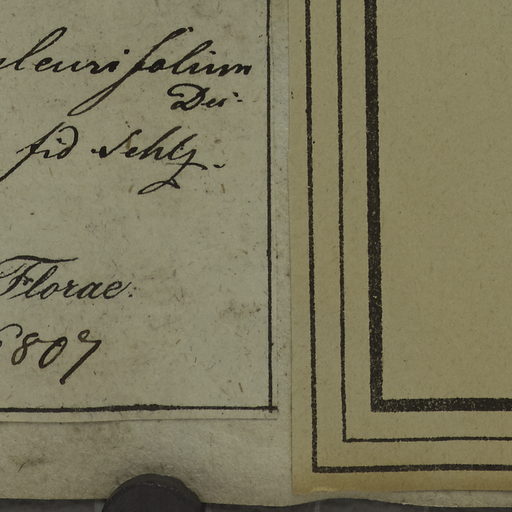 leurifolium
Des.
fid Schltz.
Florae.
1807